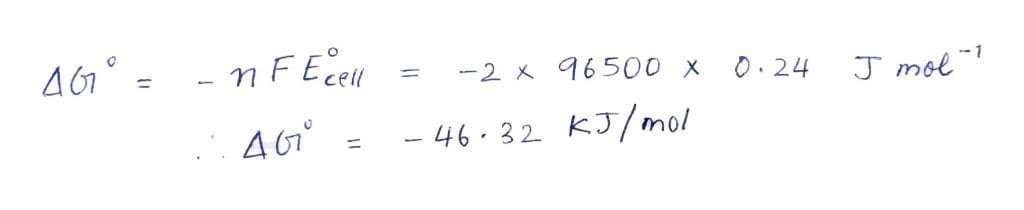 ΔG° = - nFE°cell = -2 × 96500 × 0.24 J mol⁻¹
∴ ΔG° = - 46.32 KJ/mol